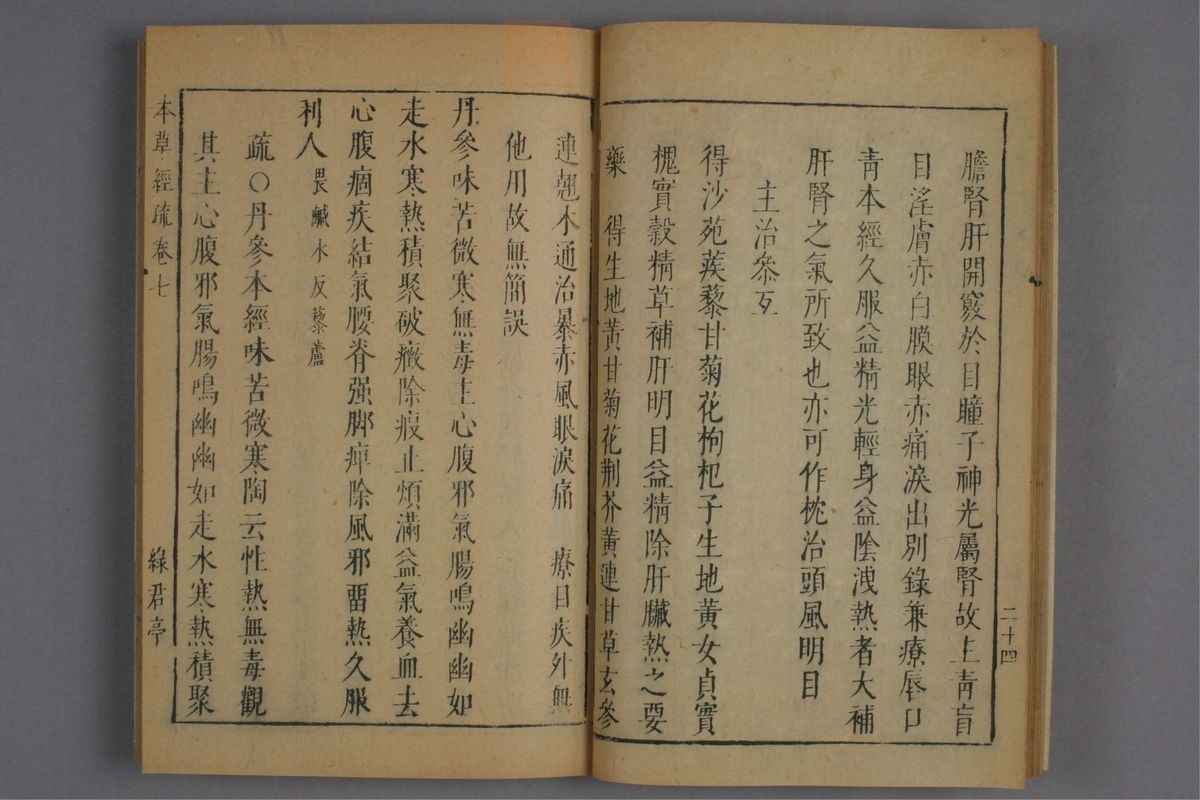 膽腎肝開竅於目瞳子神光屬腎故主靑盲
目淫膚赤白膜眼赤痛淚出別錄兼療唇口
靑本經久服益精光輕身益陰洩熱者大補
肝腎之氣所致也亦可作枕治頭風明目
主治叅互
得沙苑蒺藜甘菊花枸杞子生地黃女貞實
槐實穀精草補肝明目益精除肝臟熱之要
藥　得生地黃甘菊花荆芥黃連甘草玄參
二十四
連翹木通治暴赤風眼淚痛　療目疾外無
他用故無簡誤
丹參味苦微寒無毒主心腹邪氣腸鳴幽幽如
走水寒熱積聚破癥除瘕止煩滿益氣養血去
心腹痼疾結氣腰脊强脚痺除風邪畱熱久服
利人畏鹹水反藜蘆
疏○丹參本經味苦微寒陶云性熱無毒觀
其主心腹邪氣腸鳴幽幽如走水寒熱積聚
本草經疏卷七
綠君亭